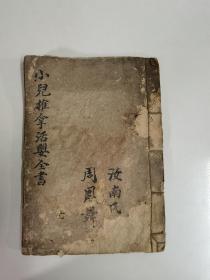 小兒推拿活嬰全書
汝南氏
周鳳